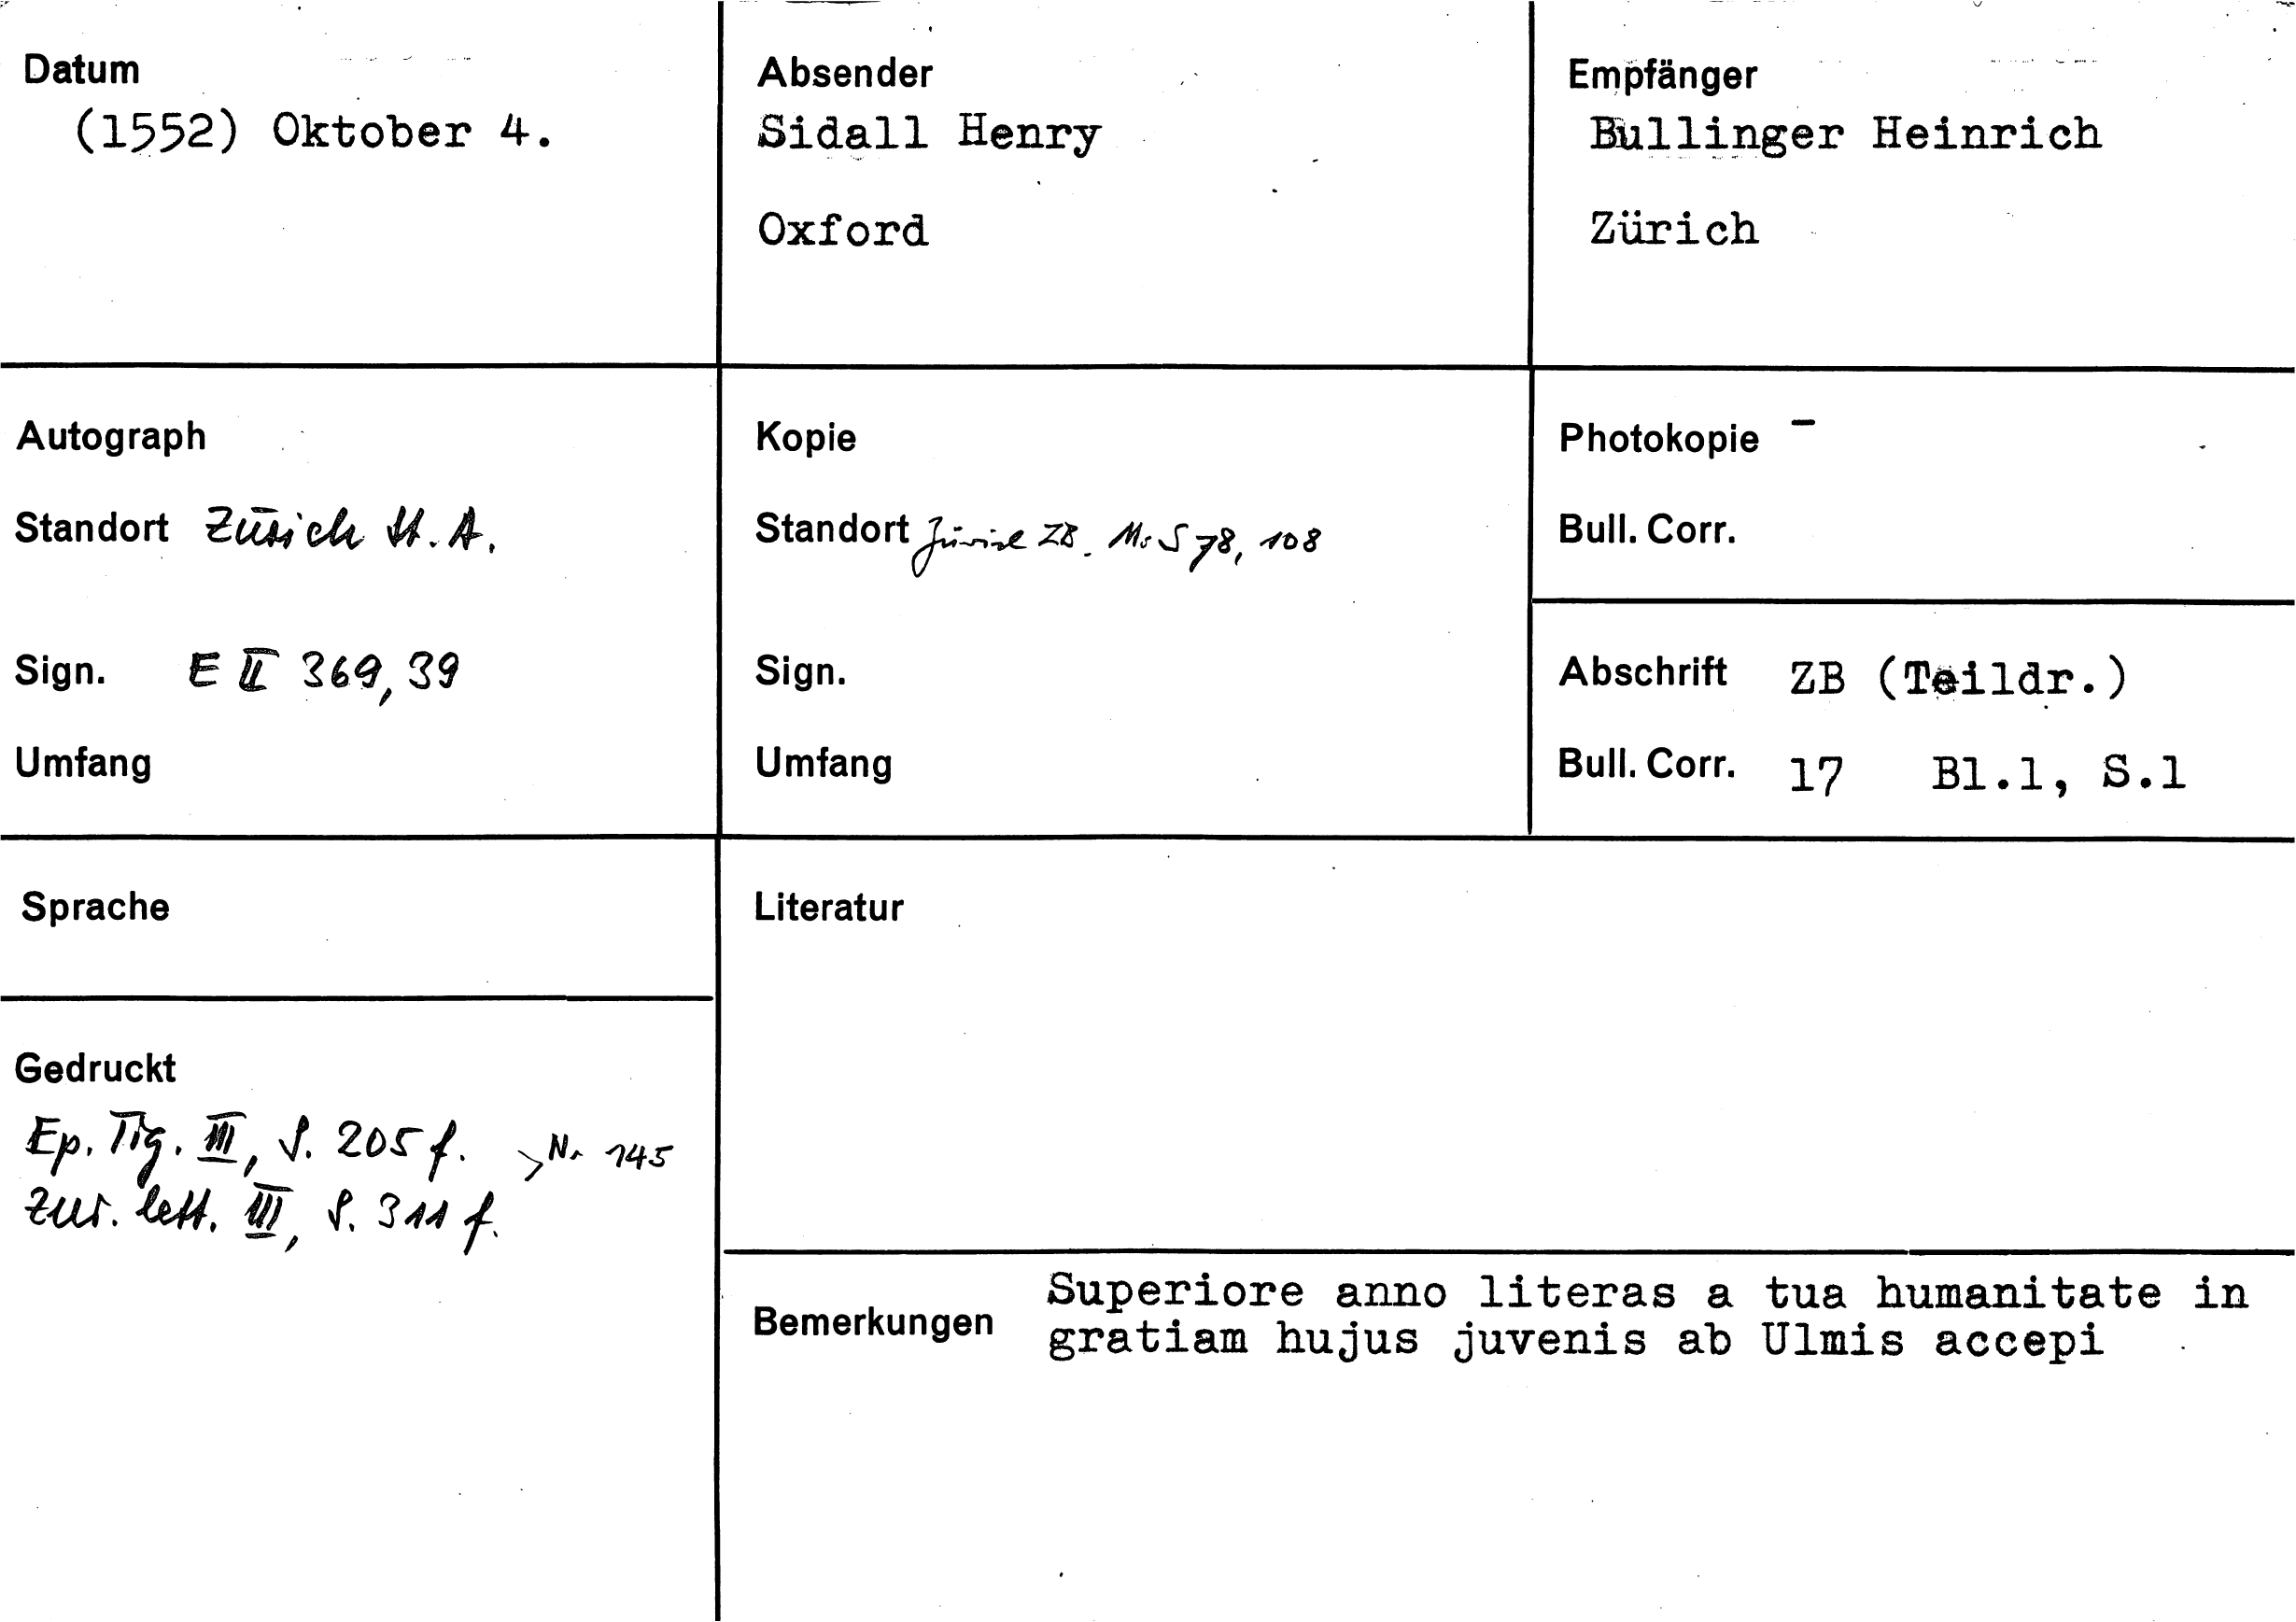 Datum
(1552) Oktober 4.
Absender
Sidall Henry
Oxford
Empfänger
Bullinger Heinrich
Zürich
Autograph
Standort Zürich St. A.
Sign. E II 369, 39
Umfang
Kopie
Standort Zürich ZB. Ms S 78, 108
Sign.
Umfang
Photokopie -
Bull. Corr.
Abschrift ZB (Teildr.)
Bull. Corr. 17 Bl.1, S.1
Sprache
Gedruckt
Ep. Tig. III, S. 205 f. > Nr 145
Zur. lett. III, S. 311 f.
Literatur
Bemerkungen
Superiore anno literas a tua humanitate in
gratiam hujus juvenis ab Ulmis accepi